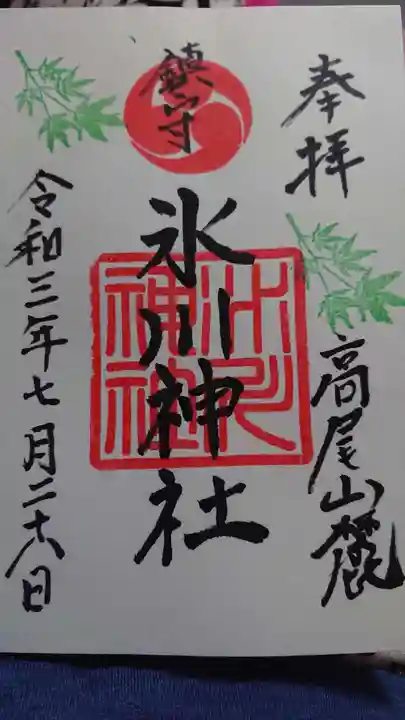 奉拝
高尾山麓
鎮守
氷川神社
氷川神社
令和三年七月二十八日